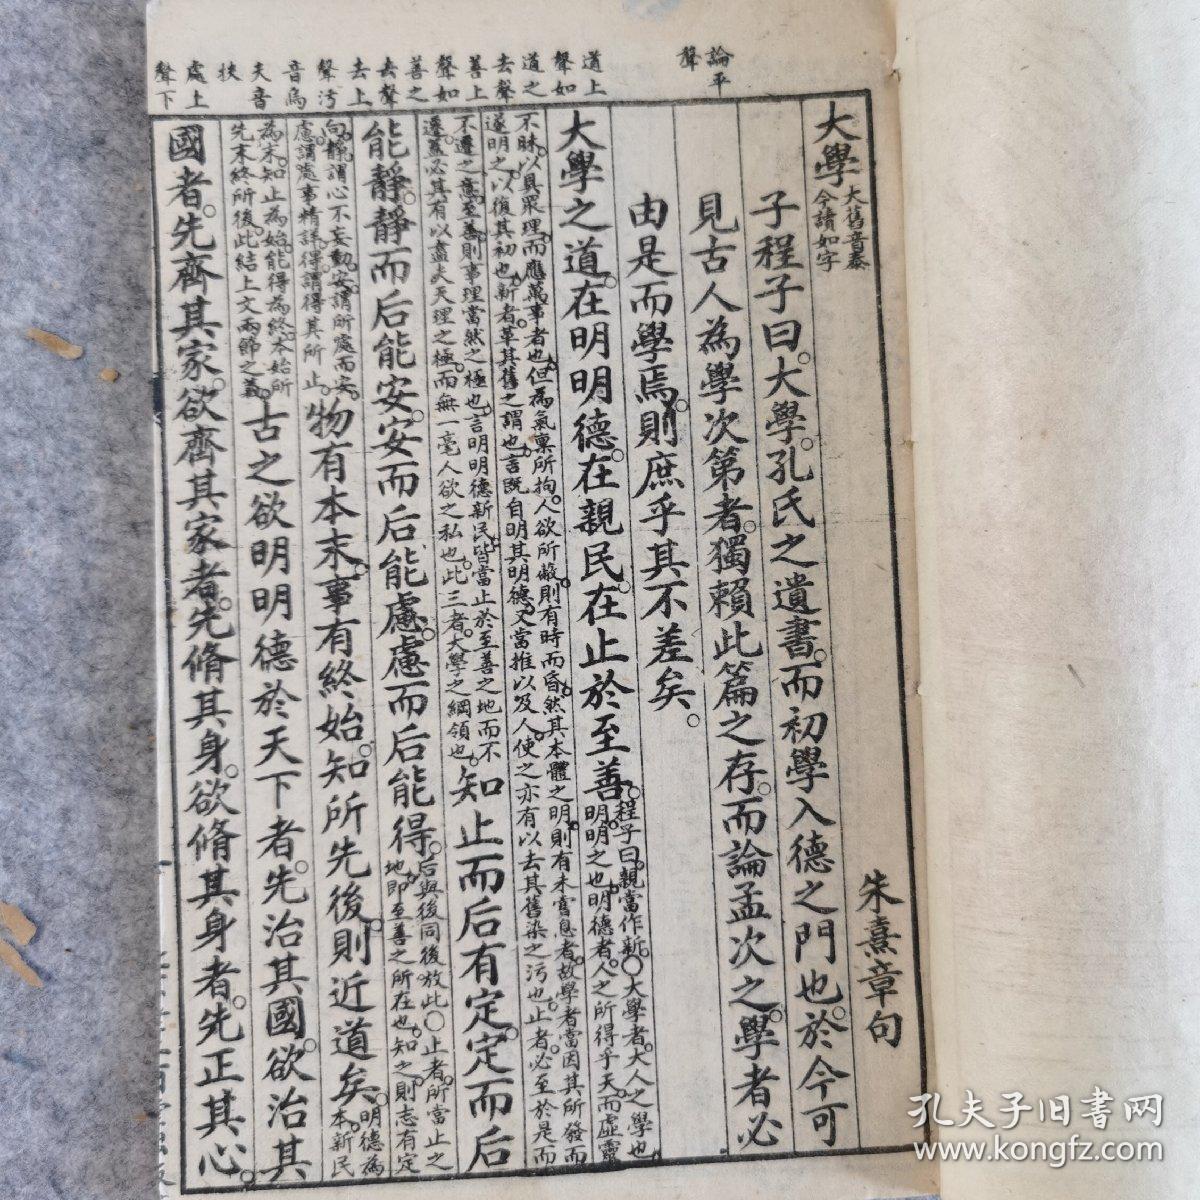 論平
聲
道上
聲如
道之
去聲
善上
聲如
善之
去聲
去上
聲汚
音烏
夫音
扶
處上
聲下
大學
大舊音泰
今讀如字
朱熹章句
子程子曰。大學。孔氏之遺書。而初學入德之門也。於今可
見古人為學次第者。獨賴此篇之存。而論孟次之。學者必
由是而學焉。則庶乎其不差矣。
大學之道。在明明德。在親民。在止於至善。
程子曰。親當作新。○大學者。大人之學也。
明明之也。明德者。人之所得乎天。而虛靈
不昧。以具眾理。而應萬事者也。但為氣稟所拘。人欲所蔽。則有時而昏。然其本體之明。則有未嘗息者。故學者當因其所發而
遂明之。以復其初也。新者。革其舊之謂也。言既自明其明德。又當推以及人。使之亦有以去其舊染之污也。止者。必至於是而
不遷之意。至善。則事理當然之極也。言明明德新民。皆當止於至善之地而不
遷。蓋必其有以盡夫天理之極。而無一毫人欲之私也。此三者。大學之綱領也。
知止而后有定。定而后
能靜。靜而后能安。安而后能慮。慮而后能得。
后與後同後放此。○止者。所當止之
地。即至善之所在也。知之。則志有定
向。靜。謂心不妄動。安。謂所處而安。
慮。謂處事精詳。得。謂得其所止。
物有本末。事有終始。知所先後。則近道矣。
明德為
本。新民
為末。知止為始。能得為終。本始所
先末終所後。此結上文兩節之義。
古之欲明明德於天下者。先治其國。欲治其
國者。先齊其家。欲齊其家者。先脩其身。欲脩其身者。先正其心。
孔夫子旧書网
www.kongfz.com